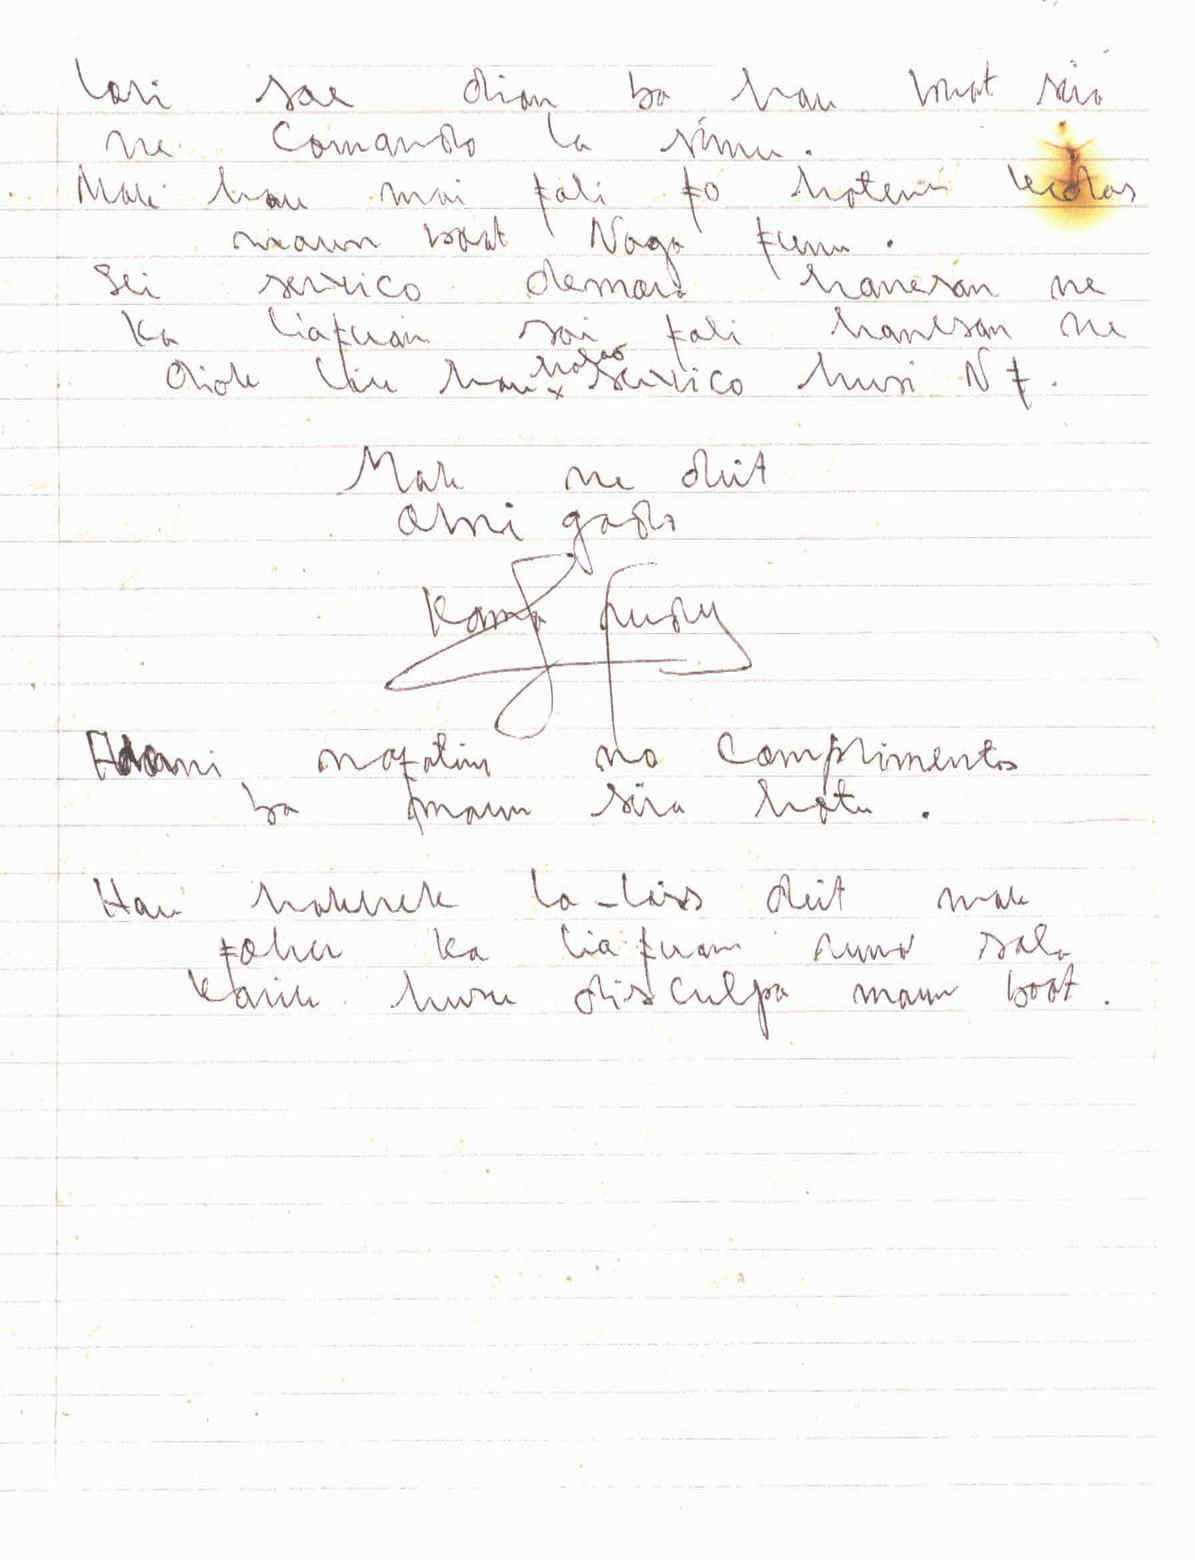 lori sae dian ba hau boot sira
ne Comando la simu.
Mak hau mai fali fo hatene
maun boot Naga funu.
Sei servico demais hanesan ne
Ka liafuan sai fali hanesan ne
diak liu hau x husas servico husi N f.
Mak ne deit
obri gado
nafatin no Complimentos
ba maun sira hotu.
Hau hakerek la-liss deit mak
foher ka liafuan ruma sala
Karik husu disculpa maun boot.